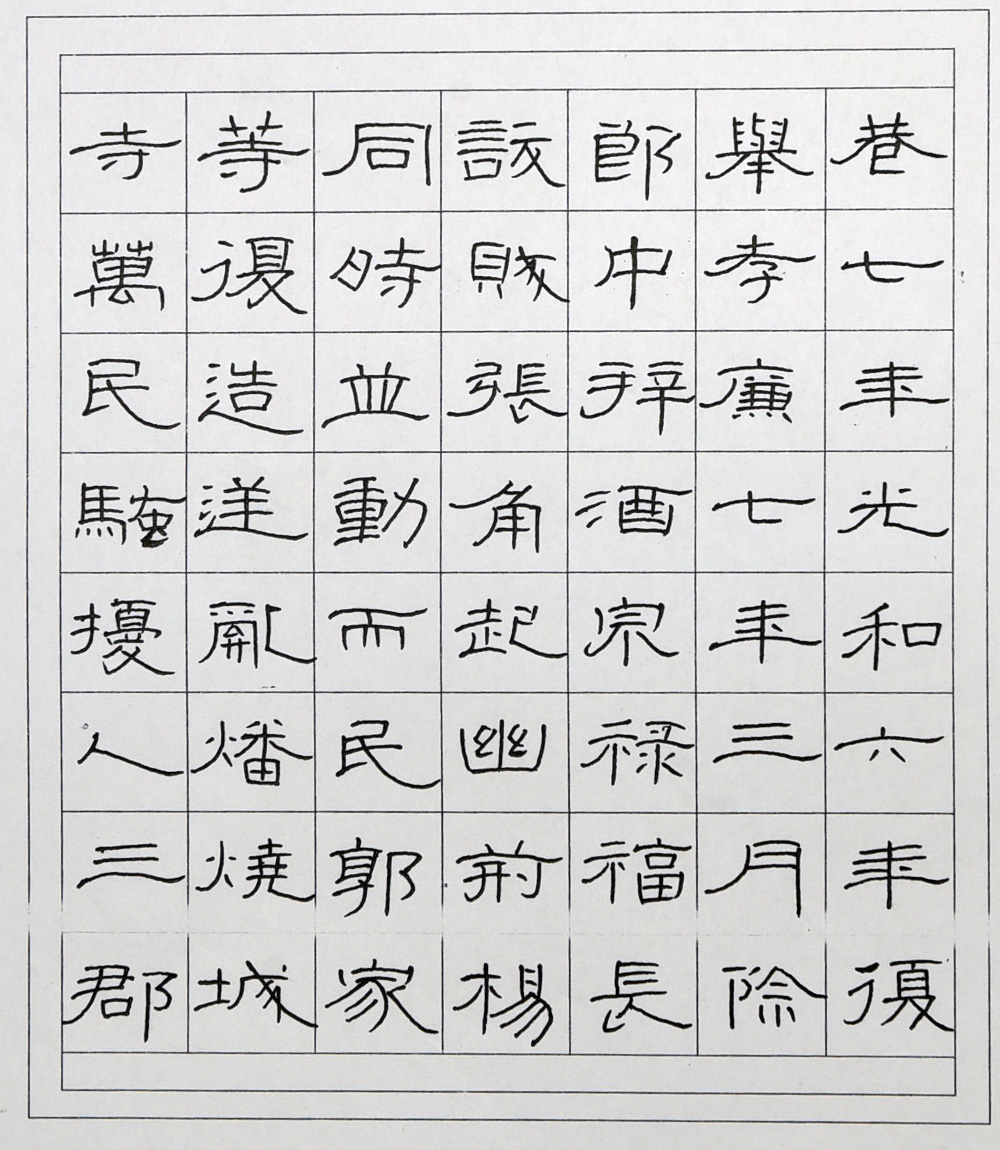 巷七年光和六年復
舉孝廉七年三月除
郎中拜酒泉禄福長
訞賊張角起幽荊楊
同時並動而民郭家
等復造逆亂燔燒城
寺萬民騷擾人三郡